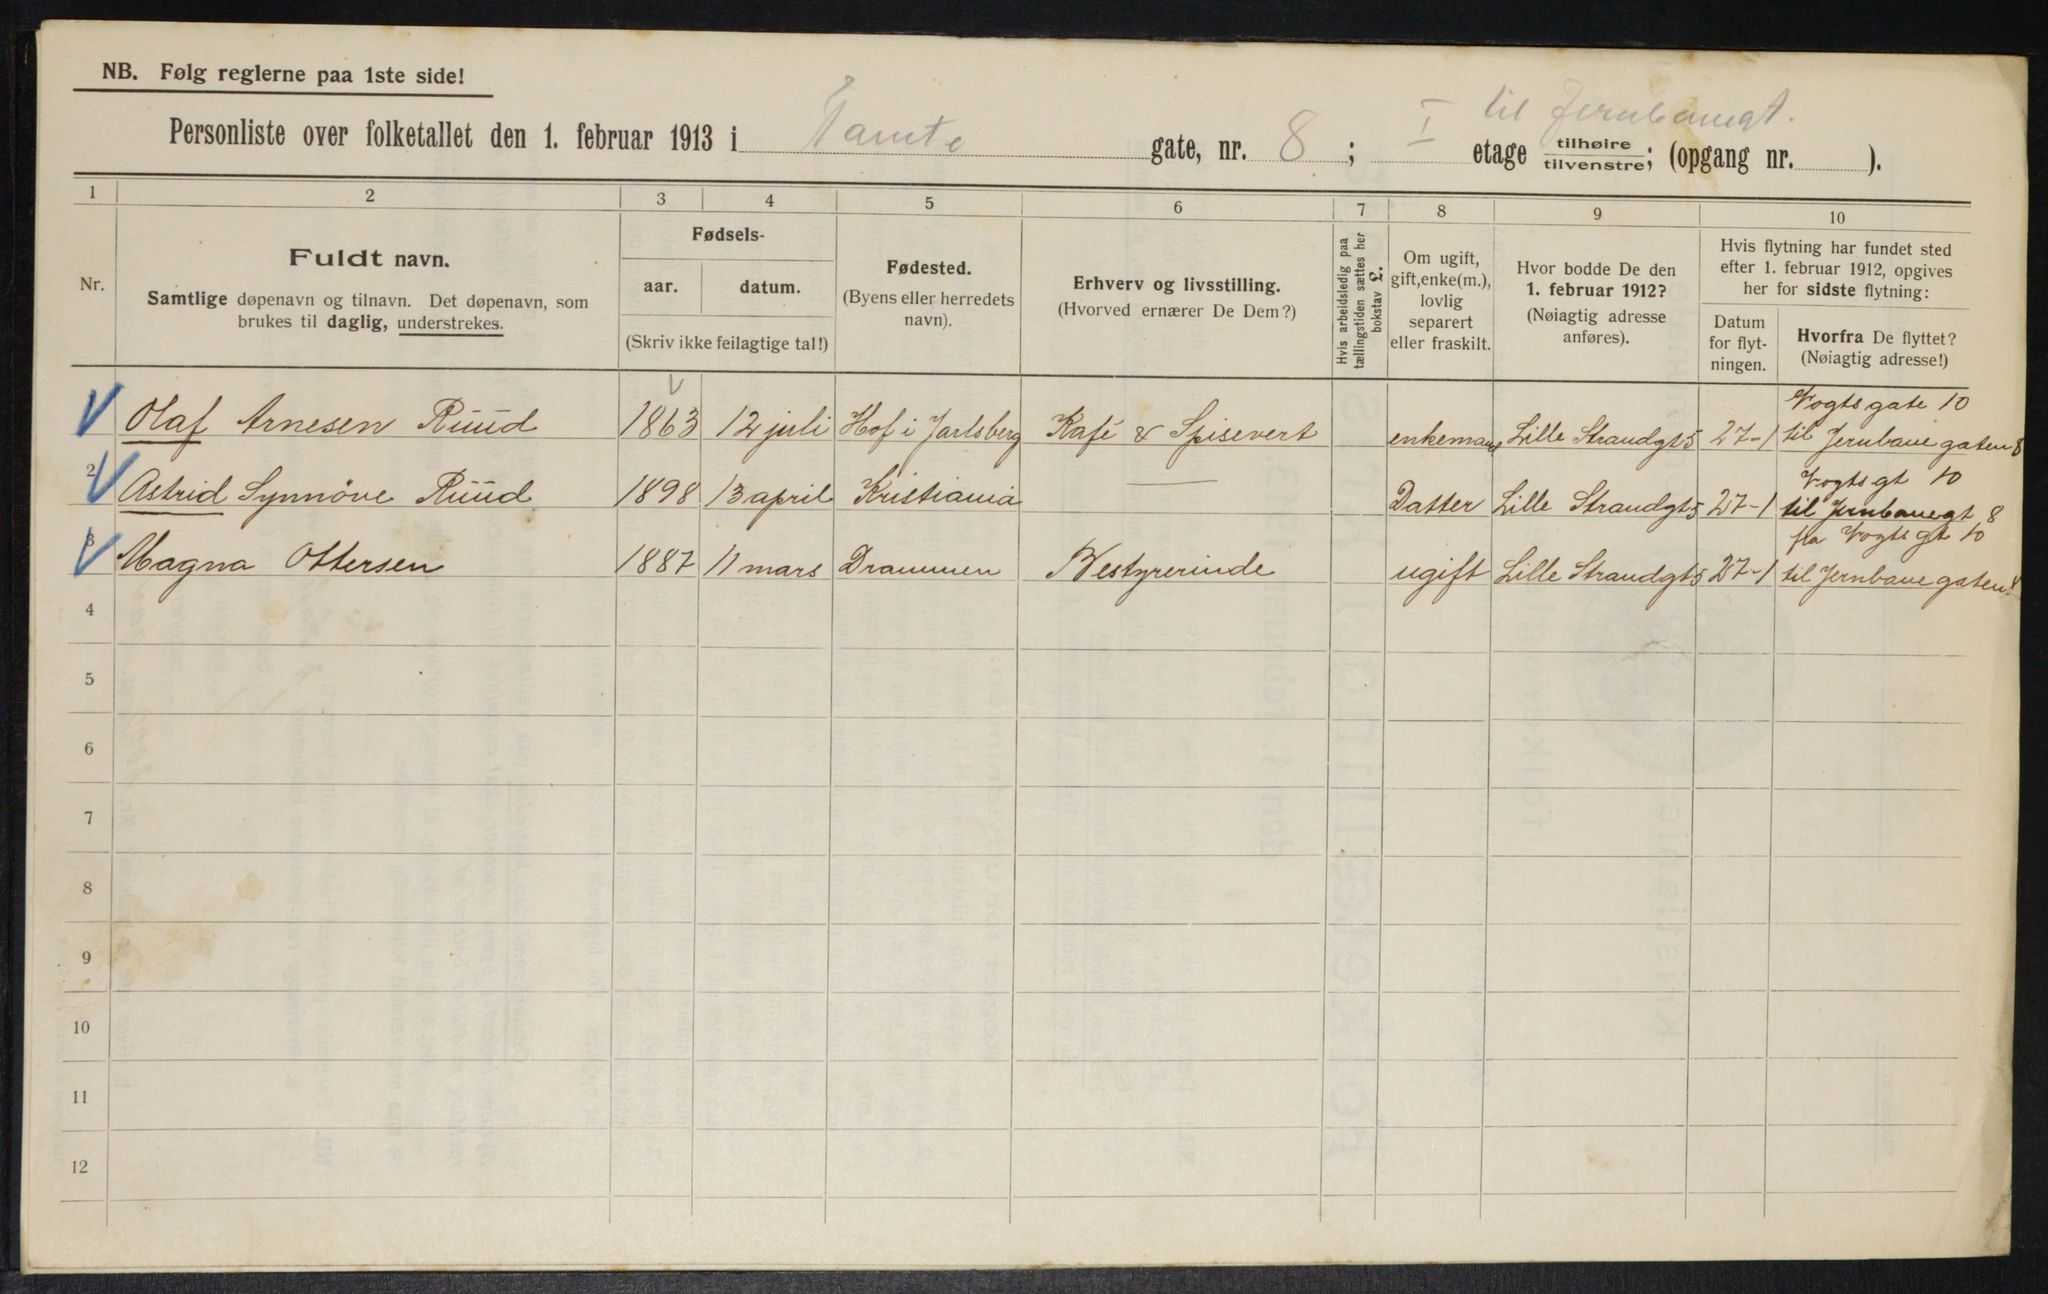 NB. Følg reglerne paa 1ste side!
til Jernbanegt.
Personliste over folketallet den 1. februar 1913 i Tomte gate, nr. 8; I etage tilhøire/tilvenstre; (opgang nr. ).
1 2 3 4 5 6 7 8 9 10
Nr.
Fuldt navn.
Samtlige døpenavn og tilnavn. Det døpenavn, som
brukes til daglig, understrekes.
Fødsels-
aar. datum.
(Skriv ikke feilagtige tal!)
Fødested.
(Byens eller herredets
navn).
Erhverv og livsstilling.
(Hvorved ernærer De Dem?)
Hvis arbeidsledig paa
tællingstiden sættes her
bokstav L.
Om ugift,
gift, enke(m.),
lovlig
separert
eller fraskilt.
Hvor bodde De den
1. februar 1912?
(Nøiagtig adresse
anføres).
Hvis flytning har fundet sted
efter 1. februar 1912, opgives
her for sidste flytning:
Datum
for flyt-
ningen.
Hvorfra De flyttet?
(Nøiagtig adresse!)
Vogts gate 10
Olaf Arnesen Ruud 1863 12 juli Hof i Jarlsberg Kafé & Spisevert enkemand Lille Strandgt 5 27-1 til Jernbanegaten 8
Vogts gt 10
2 Astrid Synnöve Ruud 1898 13 april Kristiania — Datter Lille Strandgt 5 27-1 til Jernbanegt 8
fra Vogts gt 10
3 Magna Ottersen 1887 11 mars Drammen Bestyrerinde ugift Lille Strandgt 5 27-1 til Jernbanegaten 8
4
5
6
7
8
9
10
11
12